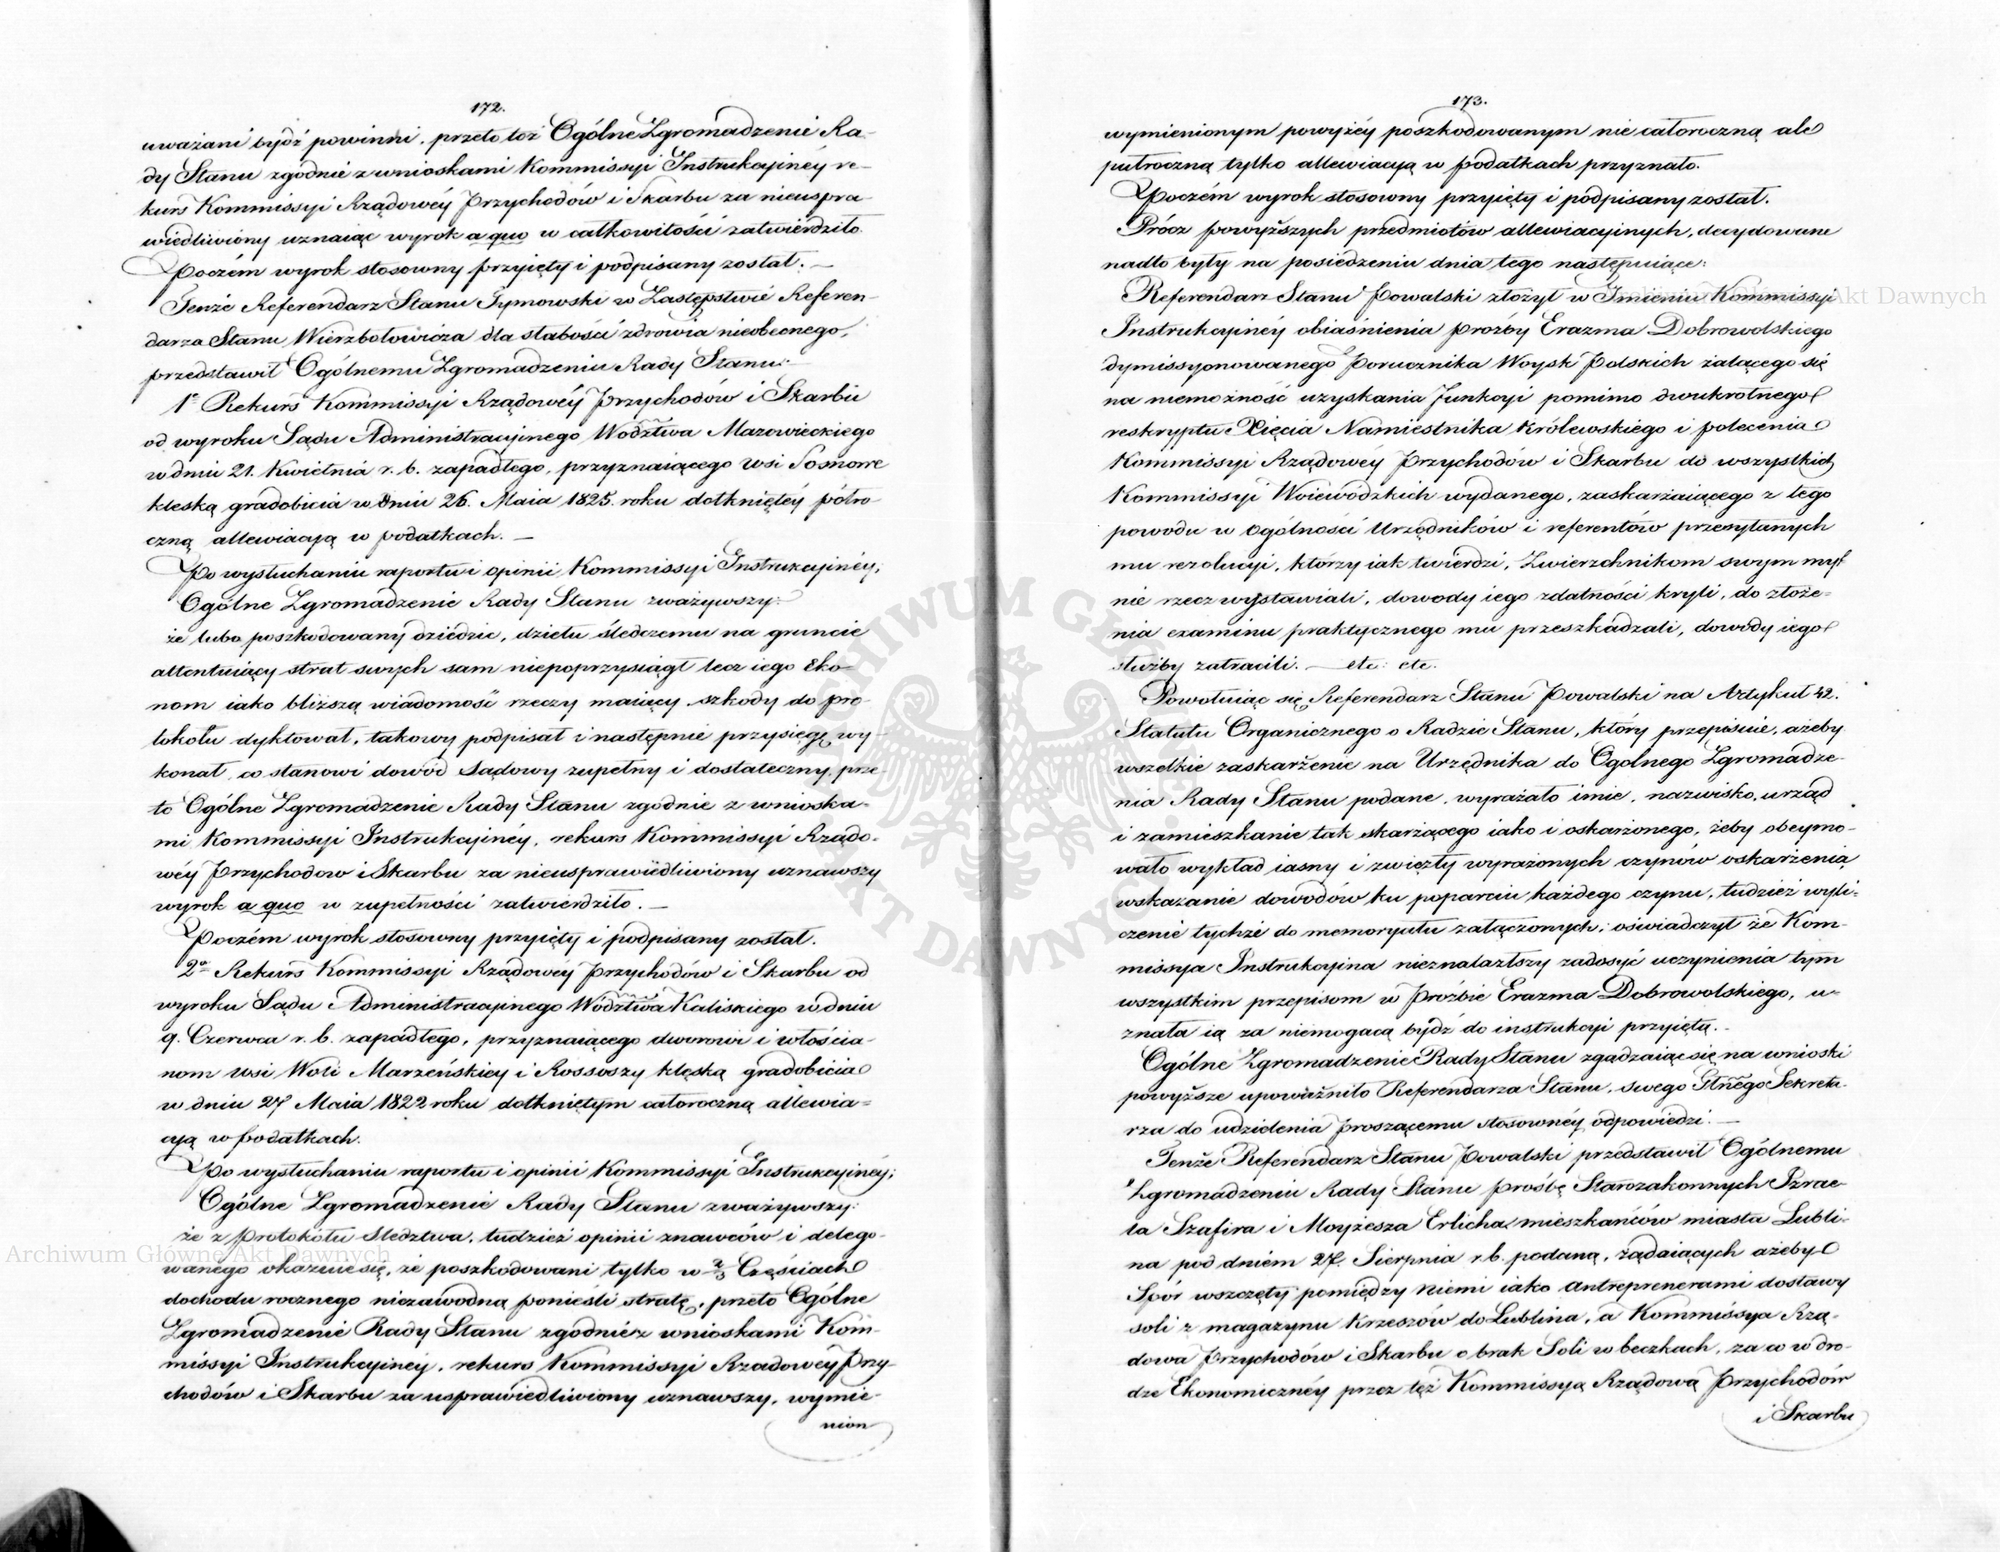 172.
uważani bydź powinni, przeto też Ogólne Zgromadzenie Ra-
dy Stanu zgodnie z wnioskami Kommissyi Instrukcyinéy re-
kurs Kommissyi Rządowéy Przychodów i Skarbu za nieuspra
wiedliwiony uznaiąc wyrok a quo w całkowitości zatwierdziło.
Poczém wyrok stosowny przyięty i podpisany został. —
Tenże Referendarz Stanu Tymowski w Zastępstwie Referen-
darza Stanu Wierzbołowicza dla słabości zdrowia nieobecnego,
przedstawił Ogólnemu Zgromadzeniu Rady Stanu:
1° Rekurs Kommissyi Rządowéy Przychodów i Skarbu
od wyroku Sądu Administracyinego Wodztwa Mazowieckiego
w dniu 21. Kwietnia r. b. zapadłego, przyznaiącego wsi Sosnowe
klęską gradobicia w dniu 26. Maia 1825. roku dotkniętéy półro-
czną allewiacyą w podatkach. —
Po wysłuchaniu raportu i opinii Kommissyi Instrukcyinéy,
Ogólne Zgromadzenie Rady Stanu zważywszy:
że lubo poszkodowany dziedzic, dziełu śledczemu na gruncie
attentuiący strat swych sam niepoprzysiągł lecz iego Eko-
nom iako bliższą wiadomość rzeczy maiący szkody do pro-
tokołu dyktował, takowy podpisał i następnie przysięgę wy-
konał, co stanowi dowód Sądowy zupełny i dostateczny, prze-
to Ogólne Zgromadzenie Rady Stanu zgodnie z wnioska-
mi Kommissyi Instrukcyinéy, rekurs Kommissyi Rządo-
wéy Przychodów i Skarbu za nieusprawiedliwiony uznawszy
wyrok a quo w zupełności zatwierdziło. —
Poczém wyrok stosowny przyięty i podpisany został.
2° Rekurs Kommissyi Rządowéy Przychodów i Skarbu od
wyroku Sądu Administracyinego Wodztwa Kaliskiego w dniu
9. Czerwca r. b. zapadłego, przyznaiącego dworowi i włościa-
nom wsi Woli Marzeńskiey i Rossoszy klęską gradobicia
w dniu 27 Maia 1822 roku dotkniętym całoroczną allewia-
cyą w podatkach.
Po wysłuchaniu raportu i opinii Kommissyi Instrukcyinéy;
Ogólne Zgromadzenie Rady Stanu zważywszy:
że z Protokółu Śledztwa, tudzież opinii znawców i delego-
wanego okazuie się, że poszkodowani tylko w 2/3 Częściach
dochodu rocznego niezawodną ponieśli stratę, przeto Ogólne
Zgromadzenie Rady Stanu zgodnie z wnioskami Kom-
missyi Instrukcyinéy, rekurs Kommissyi Rządowéy Przy-
chodów i Skarbu za usprawiedliwiony uznawszy, wymie-
nion
173.
wymienionym powyżéy poszkodowanym nie całoroczną ale
półroczną tylko allewiacyą w podatkach przyznało.
Poczém wyrok stosowny przyięty i podpisany został.
Prócz powyższych przedmiotów allewiacyinych, decydowane
nadto były na posiedzeniu dnia tego następuiące:
Referendarz Stanu Powalski złożył w Imieniu Kommissyi
Instrukcyinéy obiaśnienia proźby Erazma Dobrowolskiego
dymissyonowanego Porucznika Woysk Polskich żalącego się
na niemożność uzyskania funkcyi pomimo dwukrotnego
reskryptu Xięcia Namiestnika Królewskiego i polecenia
Kommissyi Rządowey Przychodów i Skarbu do wszystkich
Kommissyi Woiewódzkich wydanego, zaskarżaiącego z tego
powodu w ogólności Urzędników i referentów przesyłanych
mu rezolucyi, którzy iak twierdzi, Zwierzchnikom swym myl
nie rzecz wystawiali, dowody iego zdatności kryli, do złoże-
nia examinu praktycznego mu przeszkadzali, dowody iego
służby zatracili. — etc: etc.
Powołuiąc się Referendarz Stanu Powalski na Artykuł 42.
Statutu Organicznego o Radzie Stanu, który przepisuie, ażeby
wszelkie zaskarżenie na Urzędnika do Ogólnego Zgromadze-
nia Rady Stanu podane, wyrażało imie, nazwisko, urząd
i zamieszkanie tak skarżącego iako i oskarżonego, żeby obeymo-
wało wykład iasny i zwięzły wyrażonych czynów oskarżenia
wskazanie dowodów ku poparciu każdego czynu, tudzież wyli-
czenie tychże do memoryału załączonych; oświadczył że Kom-
missya Instrukcyina nieznalazłszy zadosyć uczynienia tym
wszystkim przepisom w proźbie Erazma Dobrowolskiego, u-
znała ią za niemogącą bydź do instrukcyi przyiętą. —
Ogólne Zgromadzenie Rady Stanu zgadzaiąc się na wnioski
powyższe upoważniło Referendarza Stanu, swego Głnego Sekreta-
rza do udzielenia proszącemu stosownéy odpowiedzi. —
Tenże Referendarz Stanu Powalski przedstawił Ogólnemu
Zgromadzeniu Rady Stanu proźbę Starozakonnych Izrae-
la Szafira i Moyżesza Erlicha mieszkańców miasta Lubli-
na pod dniem 27. Sierpnia r.b. podaną, żądaiących ażeby
Spór wszczęty pomiędzy niemi iako antreprenerami dostawy
soli z magazynu Krzeszów do Lublina, a Kommissyą Rzą-
dową Przychodów i Skarbu o brak Soli w beczkach, za co w dro-
dze Ekonomicznéy przez też Kommissyą Rządową Przychodów
i Skarbu
Archiwum Główne Akt Dawnych